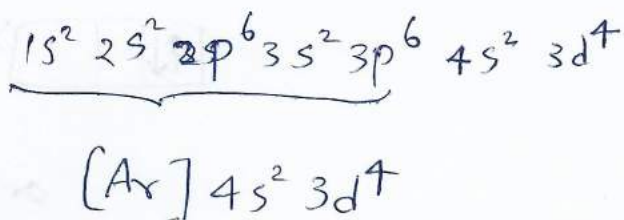 1s² 2s² 2p⁶ 3s² 3p⁶ 4s² 3d⁴
[Ar] 4s² 3d⁴